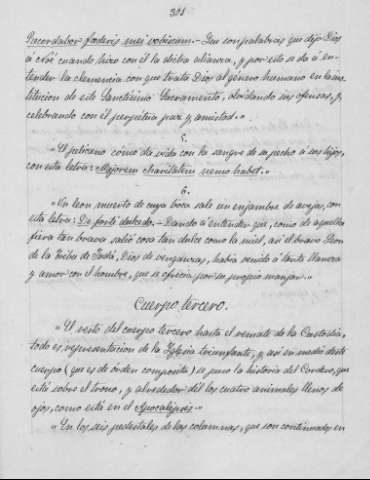 301
Recordabor fœderis mei vobiscum.- Son con palabras que dijo Dios
á Noé cuando hizo con él la dicha alianza, y por esto se dá á en-
tender la clemencia con que trata Dios al género humano en la ins-
titucion de este Santísimo Sacramento, olvidando sus ofensas, y
celebrando con él perpétua paz y amistad."
5.
"El pelícano como dá vida con la sangre de su pecho á sus hijos,
con esta letra: Majorem charitatem nemo habet."
6.
"Un leon muerto de cuya boca sale un enjambre de avejas, con
esta letra: De forti dulcedo.- Dando á entender que, como de aquella
fiera tan brava salió cosa tan dulce como la miel, así el bravo Leon
de la Tribu de Judá, Dios de venganzas, había venido á tanta llaneza
y amor con el hombre, que se ofrecía por su propio manjar."
Cuerpo tercero.
"El resto del cuerpo tercero hasta el remate de la Custodia,
todo es representacion de la Iglesia triunfante, y así en medio deste
cuerpo (que es de órden composita) se puso la historia del Cordero, que
está sobre el trono, y alrededor dél los cuatro animales llenos de
ojos, como está en el Apocalipsis."
"En los seis pedestales de las colunnas, que son continuados en